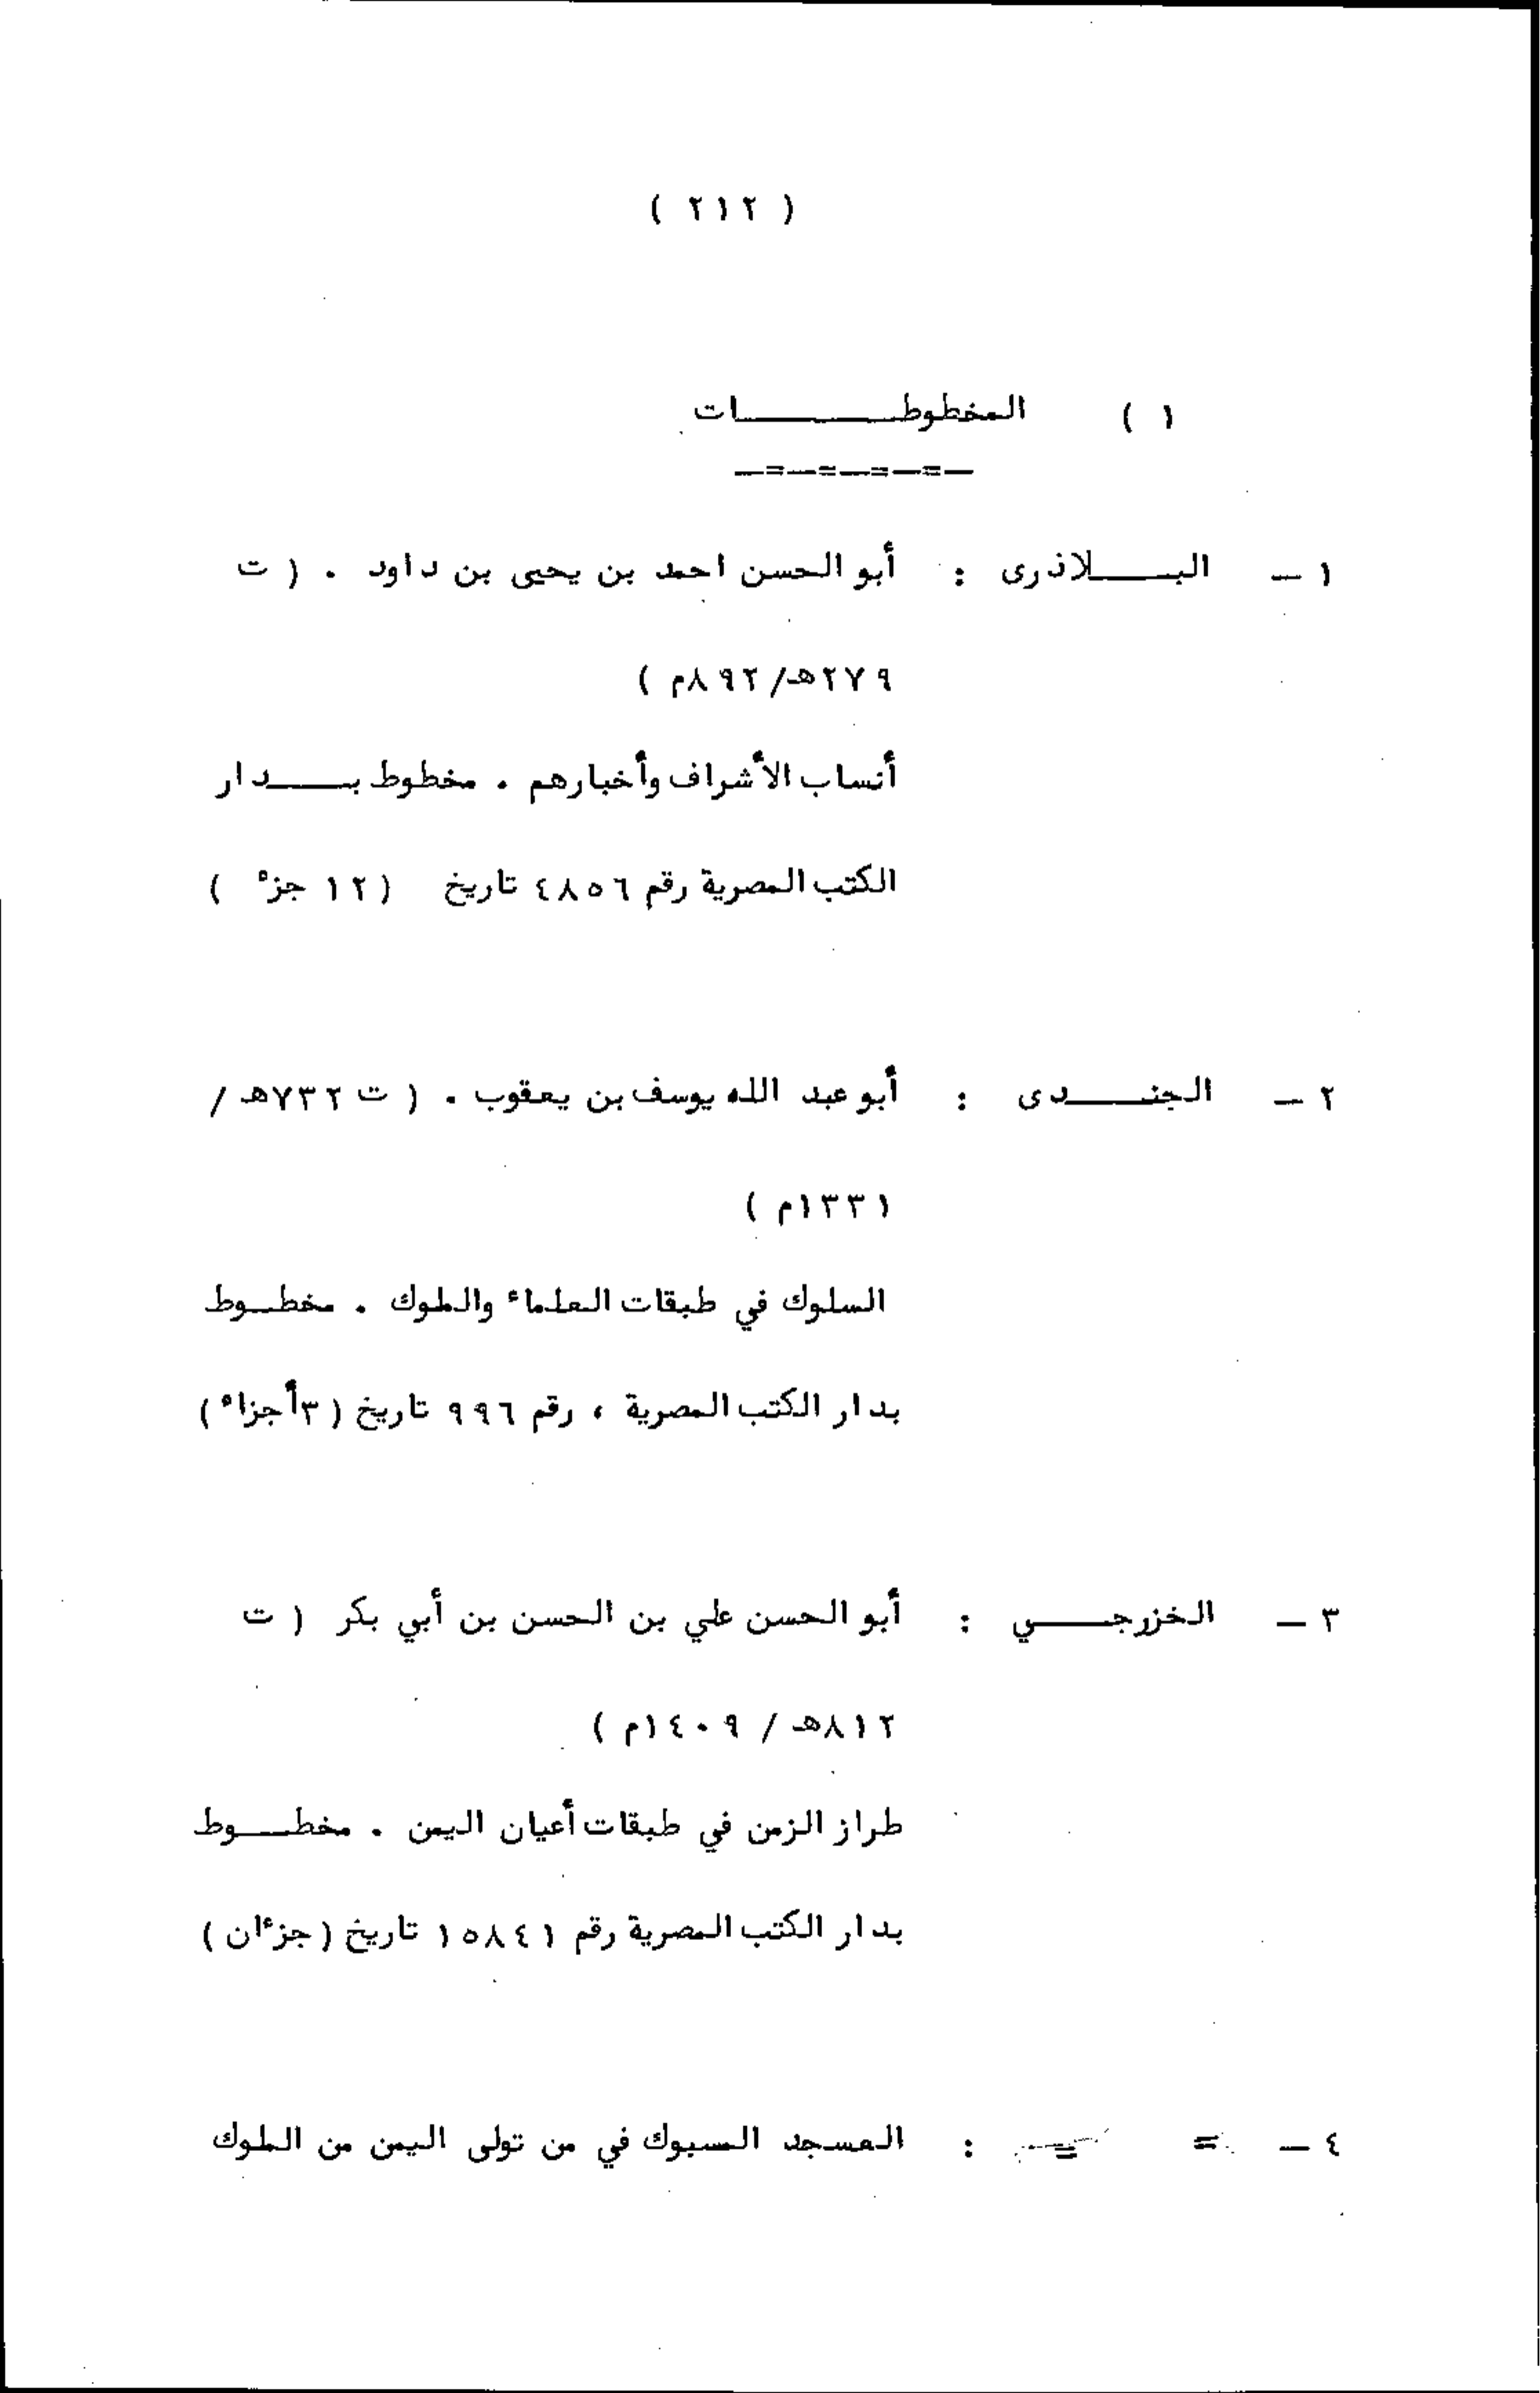 ( ٢١٢ )
١ ) المخطوطـــــــات
—=—=—=—=—
١ — البـــــلاذرى : أبو الحسن احمد بن يحيى بن داود . ( ت
٢٧٩هـ/٨٩٢م )
أنساب الأشراف وأخبارهم . مخطوط بـــــدار
الكتب المصرية رقم ٤٨٥٦ تاريخ (١٢ جزء )
٢ — الجنـــــدى : أبو عبد الله يوسف بن يعقوب . ( ت ٧٣٢هـ /
١٣٣١م )
السلوك في طبقات العلماء والملوك . مخطــوط
بدار الكتب المصرية ، رقم ٩٩٦ تاريخ (٣أجزاء)
٣ — الخزرجـــــي : أبو الحسن علي بن الحسن بن أبي بكر ( ت
٨١٢هـ / ١٤٠٩م )
طراز الزمن في طبقات أعيان اليمن . مخطـــوط
بدار الكتب المصرية رقم ١٥٨٤١ تاريخ (جزءان )
٤ — = = : العسجد المسبوك في من تولى اليمن من الملوك